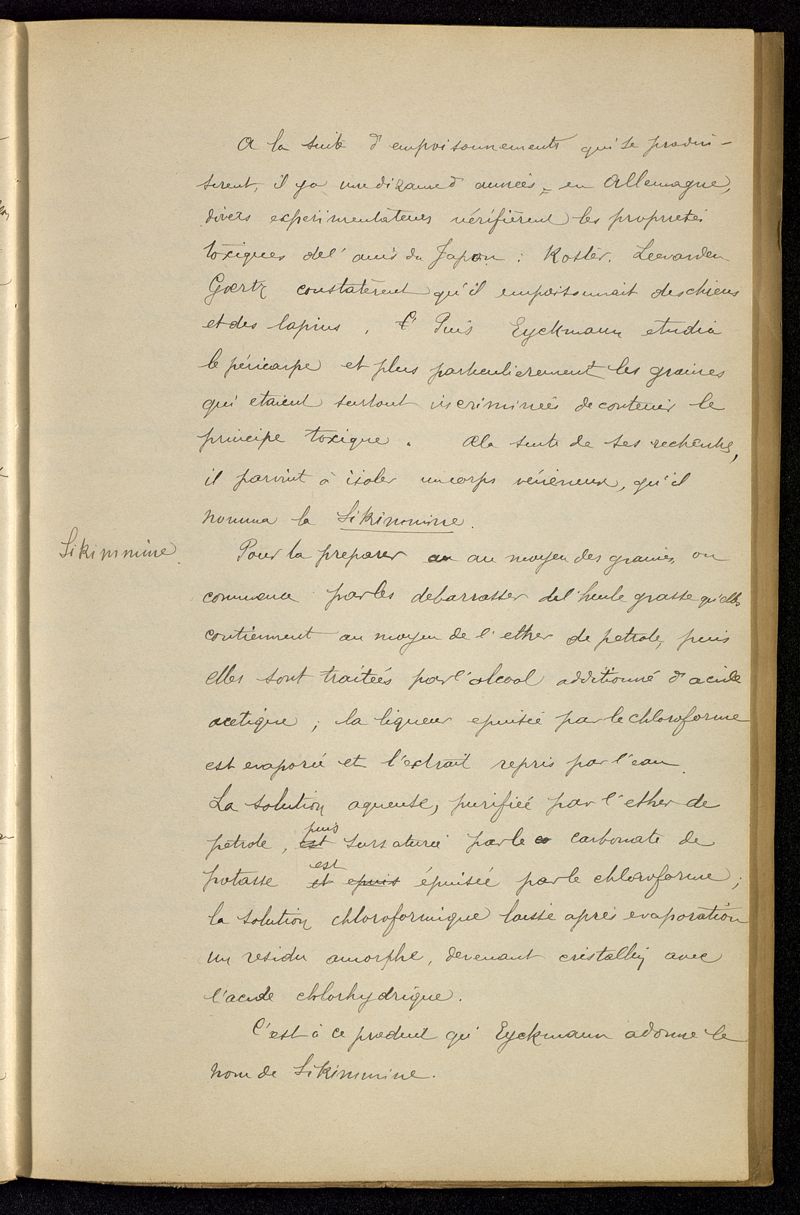 A la suite d'empoisonnements qui se produi-
sirent, il y a une dizaine d'années, en Allemagne,
divers expérimentateurs vérifièrent les proprietés
toxiques de l'anis du Japon : Koster, Leevarden
Goertz constatèrent qu'il empoisonnait des chiens
et des lapins. Puis Eyckmann etudia
le péricarpe et plus particulierement les graines
qui etaient surtout incriminées de contenir le
principe toxique. A la suite de ses recherches,
il parvint à isoler un corps vénéneux, qu'il
nomma la Sikimmine.
Sikimmine.
Pour la preparer au moyen des graines, on
commence par les debarrasser de l'huile grasse qu'elles
contiennent au moyen de l'ether de petrole, puis
elles sont traitées par l'alcool additionné d'acide
acetique ; la liqueur epuisée par le chloroforme
est evaporée et l'extrait repris par l'eau.
La solution aqueuse, purifiée par l'ether de
petrole, puis sursaturée par le carbonate de
potasse est épuisée par le chloroforme ;
la solution chloroformique laisse après evaporation
un residu amorphe, devenant cristallin avec
l'acide chlorhydrique.
C'est à ce produit qu'Eyckmann a donné le
nom de Sikimmine.